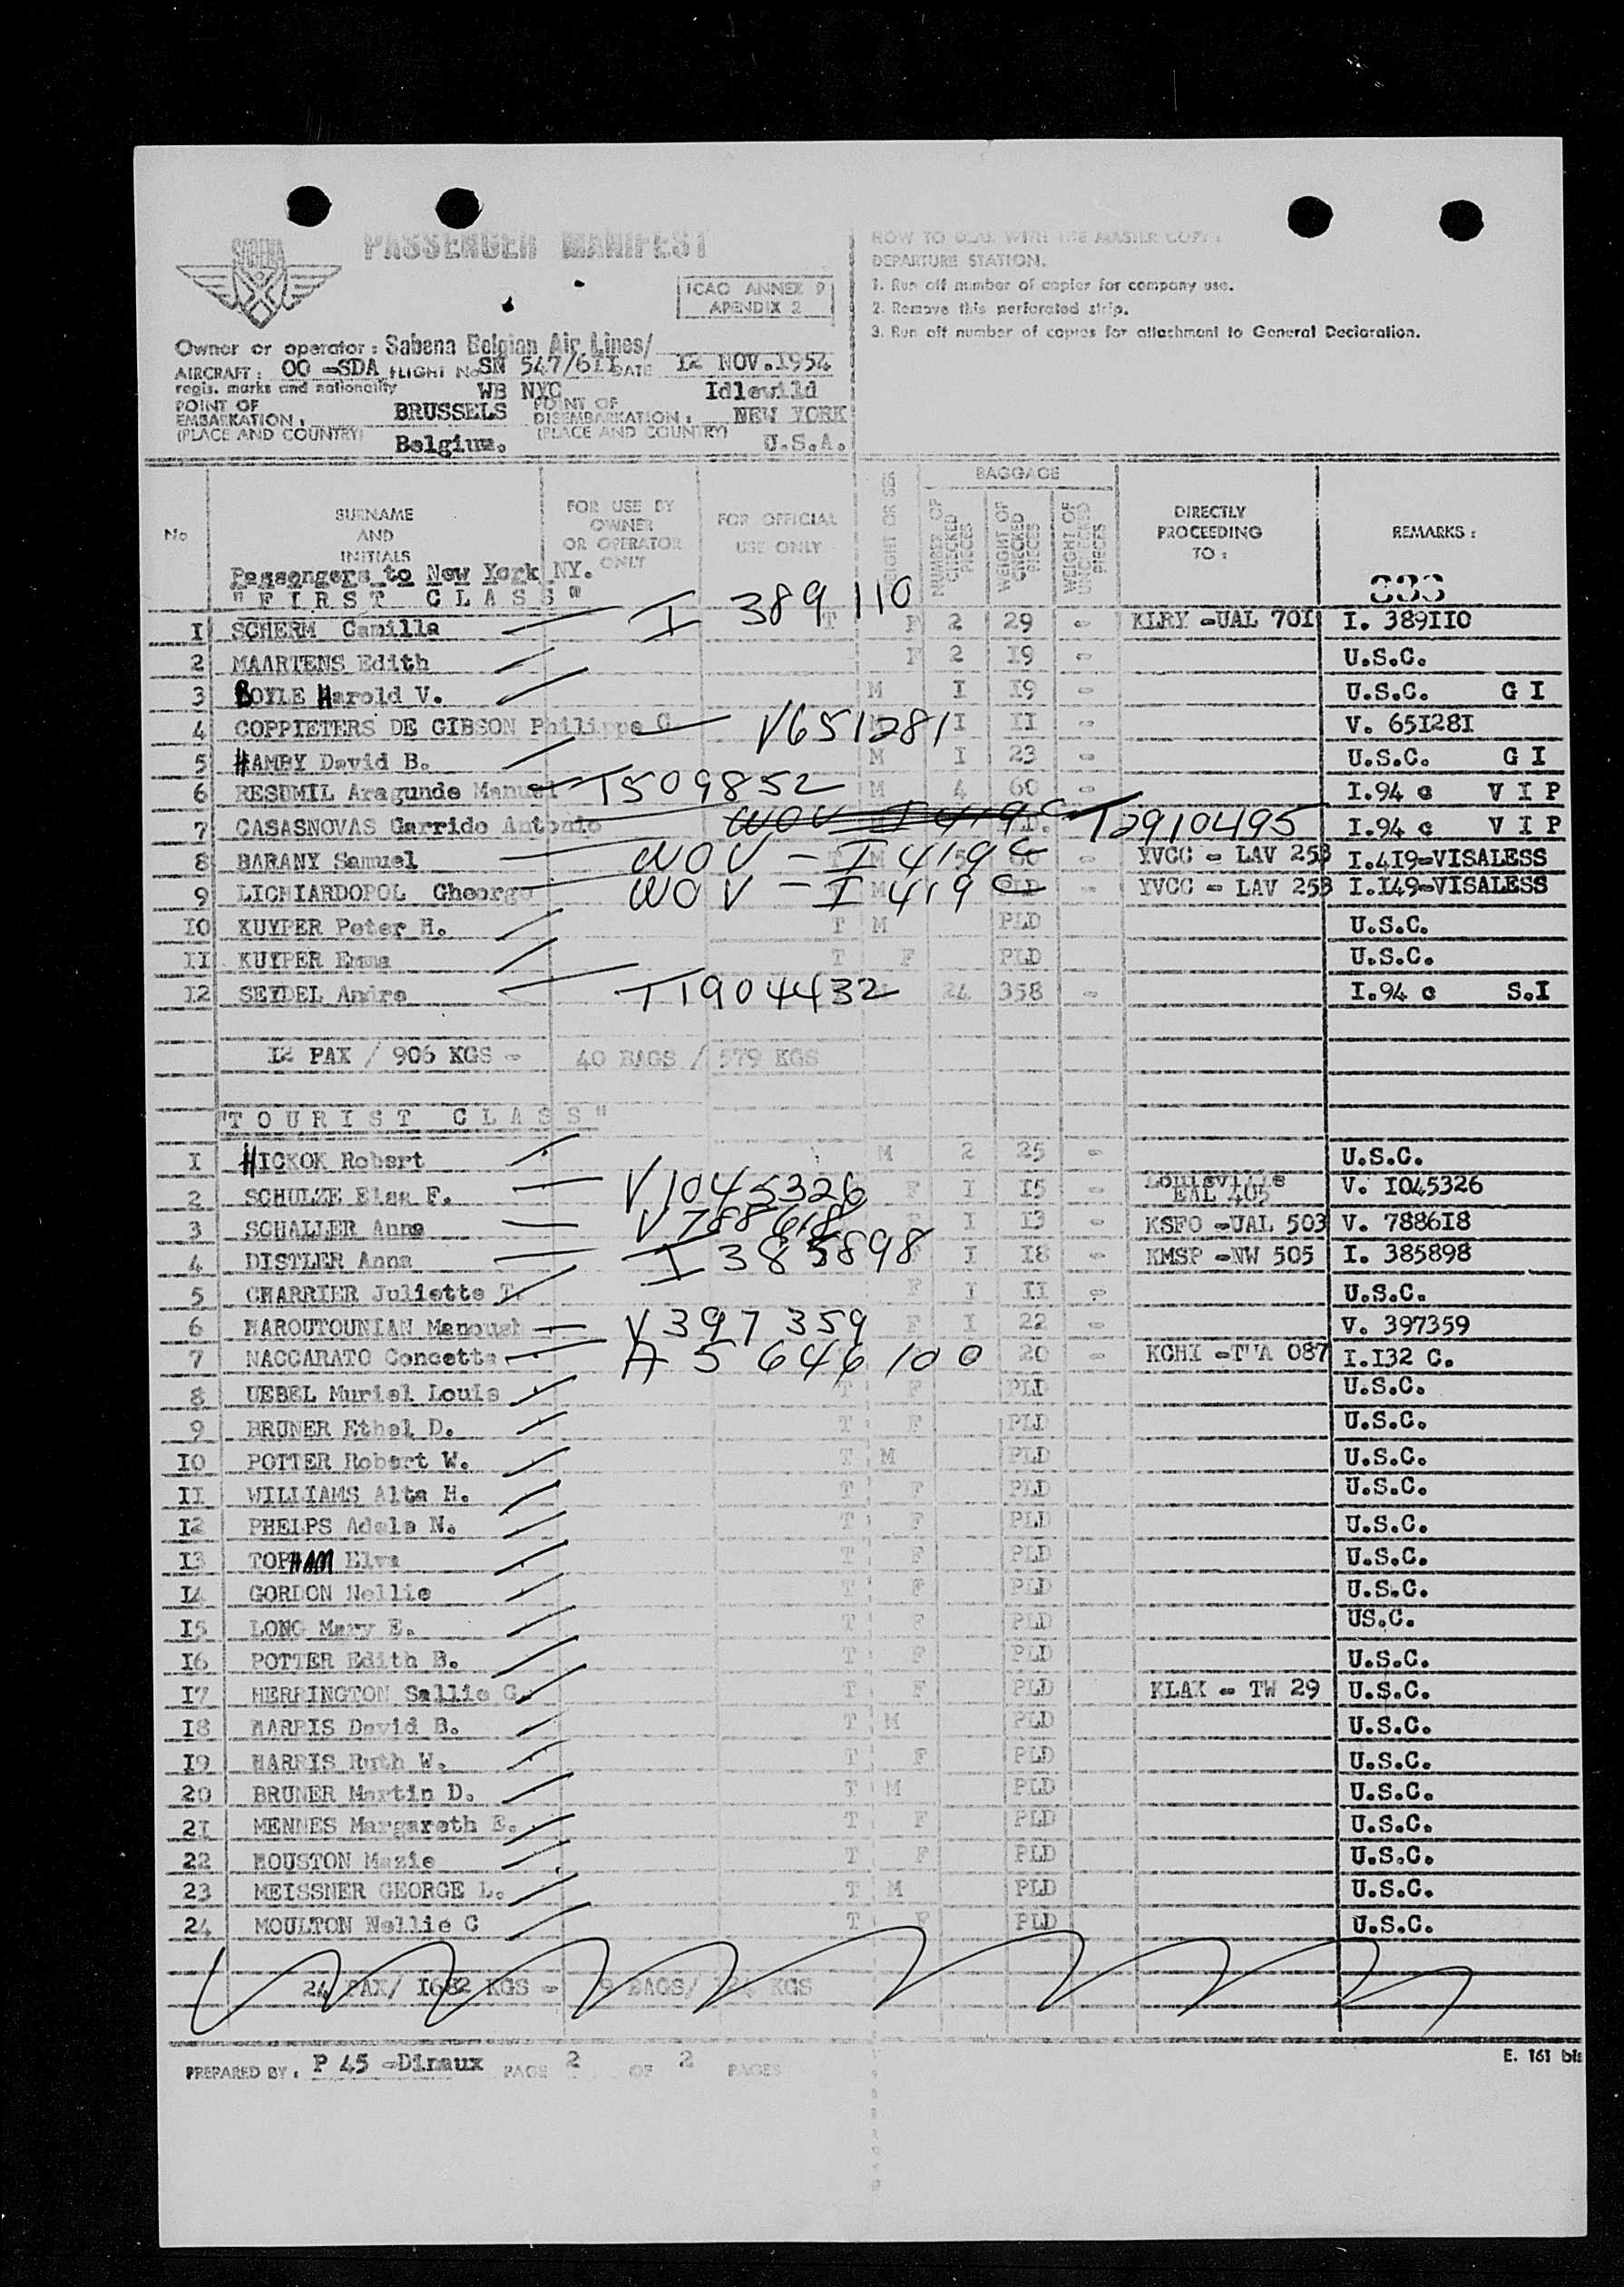 SABENA
PASSENGER MANIFEST
ICAO ANNEX 9
APENDIX 2
HOW TO DEAL WITH THE MASTER COPY :
DEPARTURE STATION.
1. Run off number of copies for company use.
2. Remove this perforated strip.
3. Run off number of copies for attachment to General Declaration.
Owner or operator : Sabena Belgian Air Lines/
AIRCRAFT : OO =SDA FLIGHT No SN 547/6II DATE I2 NOV.I954
regis. marks and nationality WB NYC Idlewild
POINT OF EMBARKATION : BRUSSELS POINT OF DISEMBARKATION : NEW YORK
(PLACE AND COUNTRY) Belgium. (PLACE AND COUNTRY) U.S.A.
No SURNAME AND INITIALS FOR USE BY OWNER OR OPERATOR ONLY FOR OFFICIAL USE ONLY WEIGHT OR SEX BAGGAGE NUMBER OF CHECKED PIECES WEIGHT OF CHECKED PIECES WEIGHT OF UNCHECKED PIECES DIRECTLY PROCEEDING TO : REMARKS :
Passengers to New York NY.
"F I R S T C L A S S"
I SCHERM Camilla I 389110 T F 2 29 = KLRY =UAL 70I I. 389II0
2 MAARTENS Edith F 2 I9 = U.S.C.
3 BOYLE Harold V. M I I9 = U.S.C. G I
4 COPPIETERS DE GIBSON Philippe G V651281 I II = V. 65I28I
5 HAMBY David B. M I 23 = U.S.C. G I
6 RESUMIL Aragunde Manuel T509852 M 4 60 = I.94 c V I P
7 CASASNOVAS Garrido Antonio WOV I 419C T2910495 I.94 c V I P
8 BARANY Samuel WOV - I 419C T M 5 60 = YVCC = LAV 253 I.4I9=VISALESS
9 LICHIARDOPOL Gheorge WOV - I 419C T M PLD = YVCC = LAV 253 I.I49=VISALESS
I0 KUYPER Peter H. T M PLD U.S.C.
II KUYPER Emma T F PLD U.S.C.
I2 SEYDEL Andre T1904432 M 24 358 = I.94 c S.I
I2 PAX / 906 KGS = 40 BAGS / 579 KGS
"T O U R I S T C L A S S"
I HICKOK Robert M 2 25 = U.S.C.
2 SCHULZE Elsa F. V1045326 F I I5 = Louisville EAL 405 V. I045326
3 SCHALLER Anna V788618 F I I3 = KSFO =UAL 503 V. 7886I8
4 DISTLER Anna I 385898 F I I8 = KMSP =NW 505 I. 385898
5 CHARRIER Juliette T. F I II = U.S.C.
6 HAROUTOUNIAN Manoush V397359 F I 22 = V. 397359
7 NACCARATO Concetta A5646100 20 = KCHI =TWA 087 I.I32 C.
8 UEBEL Muriel Louis T F PLD U.S.C.
9 BRUNER Ethel D. T F PLD U.S.C.
I0 POTTER Robert W. T M PLD U.S.C.
II WILLIAMS Alta H. T F PLD U.S.C.
I2 PHELPS Adele N. T F PLD U.S.C.
I3 TOPHAM Elva T F PLD U.S.C.
I4 GORDON Nellie T F PLD U.S.C.
I5 LONG Mary E. T F PLD US.C.
I6 POTTER Edith B. T F PLD U.S.C.
I7 HERRINGTON Sallie G. T F PLD KLAX = TW 29 U.S.C.
I8 HARRIS David B. T M PLD U.S.C.
I9 HARRIS Ruth W. T F PLD U.S.C.
20 BRUNER Martin D. T M PLD U.S.C.
2I MENNES Margareth E. T F PLD U.S.C.
22 HOUSTON Mazie T F PLD U.S.C.
23 MEISSNER GEORGE L. T M PLD U.S.C.
24 MOULTON Nellie C T F PLD U.S.C.
24 PAX/ I682 KGS = 9 BAGS/ KGS
PREPARED BY : P 45 =Dinaux PAGE 2 OF 2 PAGES
E. 161 bis